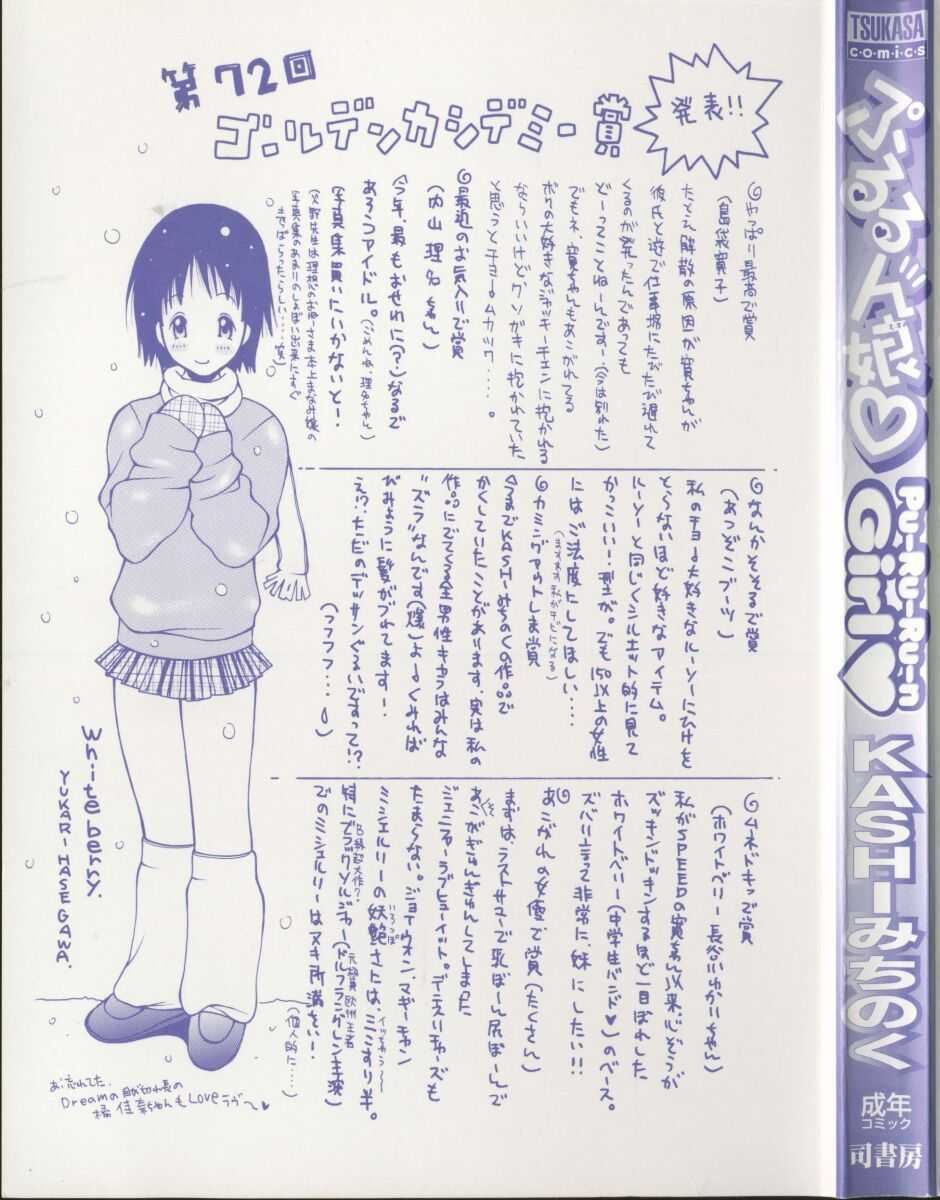 第72回
ゴールデンカシデミー賞
発表!!
◎やっぱり最高で賞
(島袋寛子)
たとえ解散の原因が寛ちゃんが
彼氏と遊んで仕事場にたびたび遅れて
くるのが発ったんであっても
どーってことねーんです…(今は別れた)
でもネ、寛ちゃんもあこがれてる
ボクの大好きなジャッキーチェンに抱かれる
ならいいけど、クソガキに抱かれていた
と思うとチョームカツク....。
◎最近のお気に入りで賞
(内山理名ちゃん)
今年、最もおせわに(?)なるで
あろうアイドル。(ごめんね、理名ちゃん)
写真集買いにいかないと!
◎なんかそそるで賞
(あつぞこブーツ)
私のチョー大好きなルーソーにひけを
とらないほど好きなアイテム。
ルーソーと同じくシルエット的に見て
かっこいい!型が。でも150以上の女性
にはご法度にしてほしい....
(ますます私がチビになる)
◎カミングアウトしま賞
今までKASHIみちのくの作品で
かくしていたことがあります。実は私の
作品にでてくる全男性キャラはみんな
"ズラ"なんです(爆)よーくみれば
びみょうに髪がづれてます!
え!?ただのデッサンぐるいですって!?
(フフフフ....)
◎ムネドキッで賞
(ホワイトベリー長谷川ゆかりちゃん)
私がSPEEDの寛ちゃん以来、心ぞうが
ズッキンドッキンするほど一目ぼれした
ホワイトベリー(中学生バンド♥)のベース。
ズバリ言って非常に、妹にしたい!!
◎あこがれの女優で賞(たくさん)
まずは、ラストサマーで乳ぼーん尻ぼーんで
あごがぎゅんぎゅんしてしまった
ジェニファーラブヒューイット。デニスリチャーズも
たまらない。ジョイウォン、マギーチャン
ミシェルリーの妖艶さたは、ミミずり半。
特にブラックソルジャー(ドルフラングレン主演)
でのミシェルリーはヌキ所満さい!
(個人的に....)
Whiteberry.
YUKARI HASEGAWA.
あ、忘れてた。
Dreamの
橘佳奈ちゃんもLoveラヴ〜♥
TSUKASA
comics
ぷるるん娘♡
PU-RU-RU-n
Girl♡
KASHIみちのく
成年
コミック
司書房